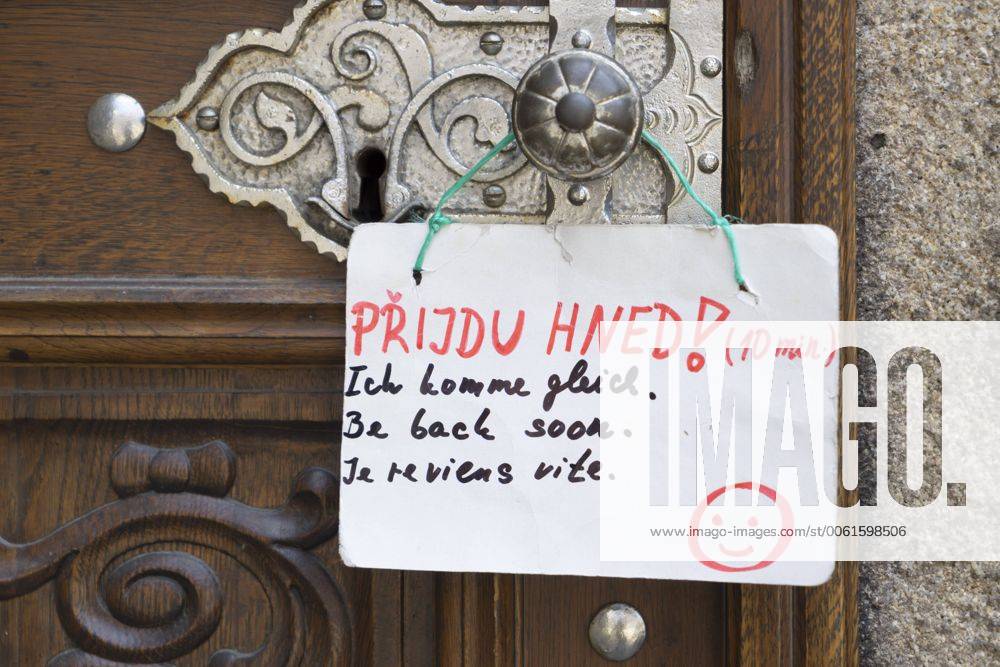 PŘIJDU HNED! (10 min.)
Ich komme gleich.
Be back soon.
Je reviens vite.
IMAGO.
www.imago-images.com/st/0061598506